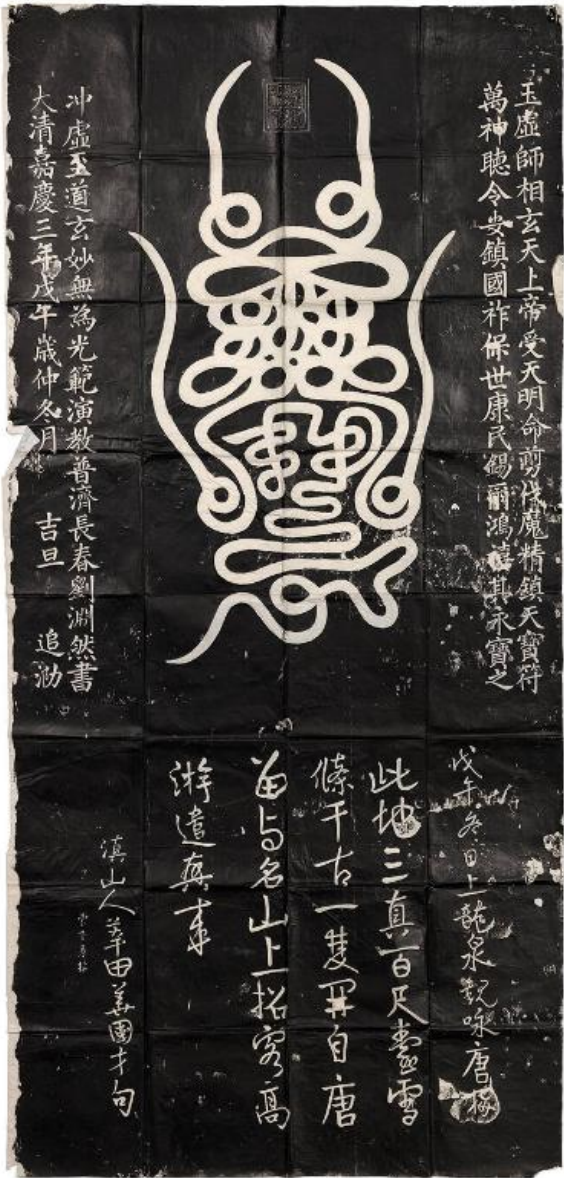 玉虛師相玄天上帝受天明命剪伐魔精鎮天寶符
萬神聽令安鎮國祚保世康民錫爾鴻禧其永寶之
冲虛至道玄妙無為光範演教普濟長春劉淵然書
大清嘉慶三年戊午歲仲冬月 吉旦 追泐
戊午冬日上龍泉觀咏唐梅
此地三真百尺臺雪
條千古一雙開自唐
留与名山上招客高
游遣興來
滇山人莘田姜國才句